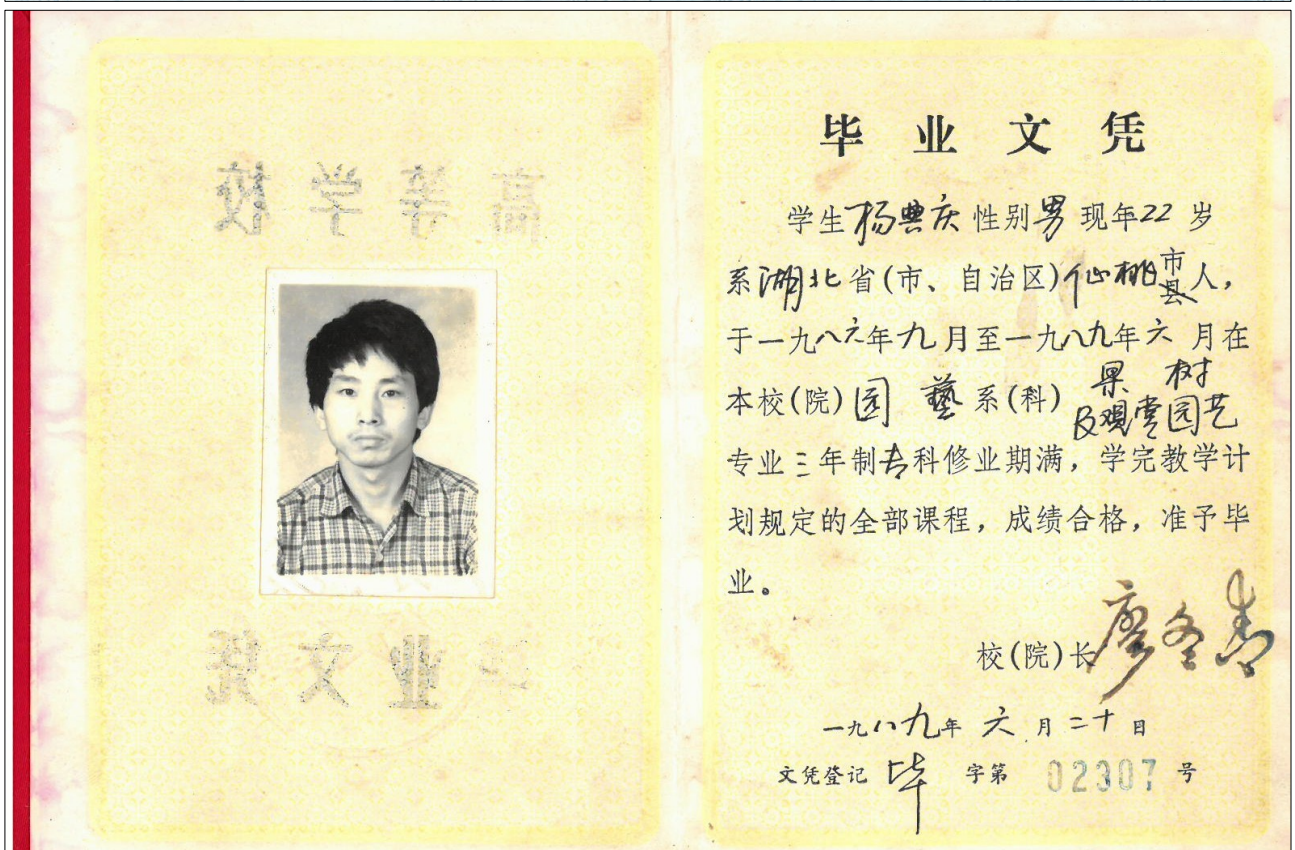 高等学校
毕业文凭
毕业文凭
学生杨典庆性别男现年22岁
系湖北省(市、自治区)仙桃市县人，
于一九八六年九月至一九八九年六月在
本校(院)园藝系(科)果树
及观赏园艺
专业三年制专科修业期满，学完教学计
划规定的全部课程，成绩合格，准予毕
业。
校(院)长
一九八九年六月二十日
文凭登记毕字第02307号